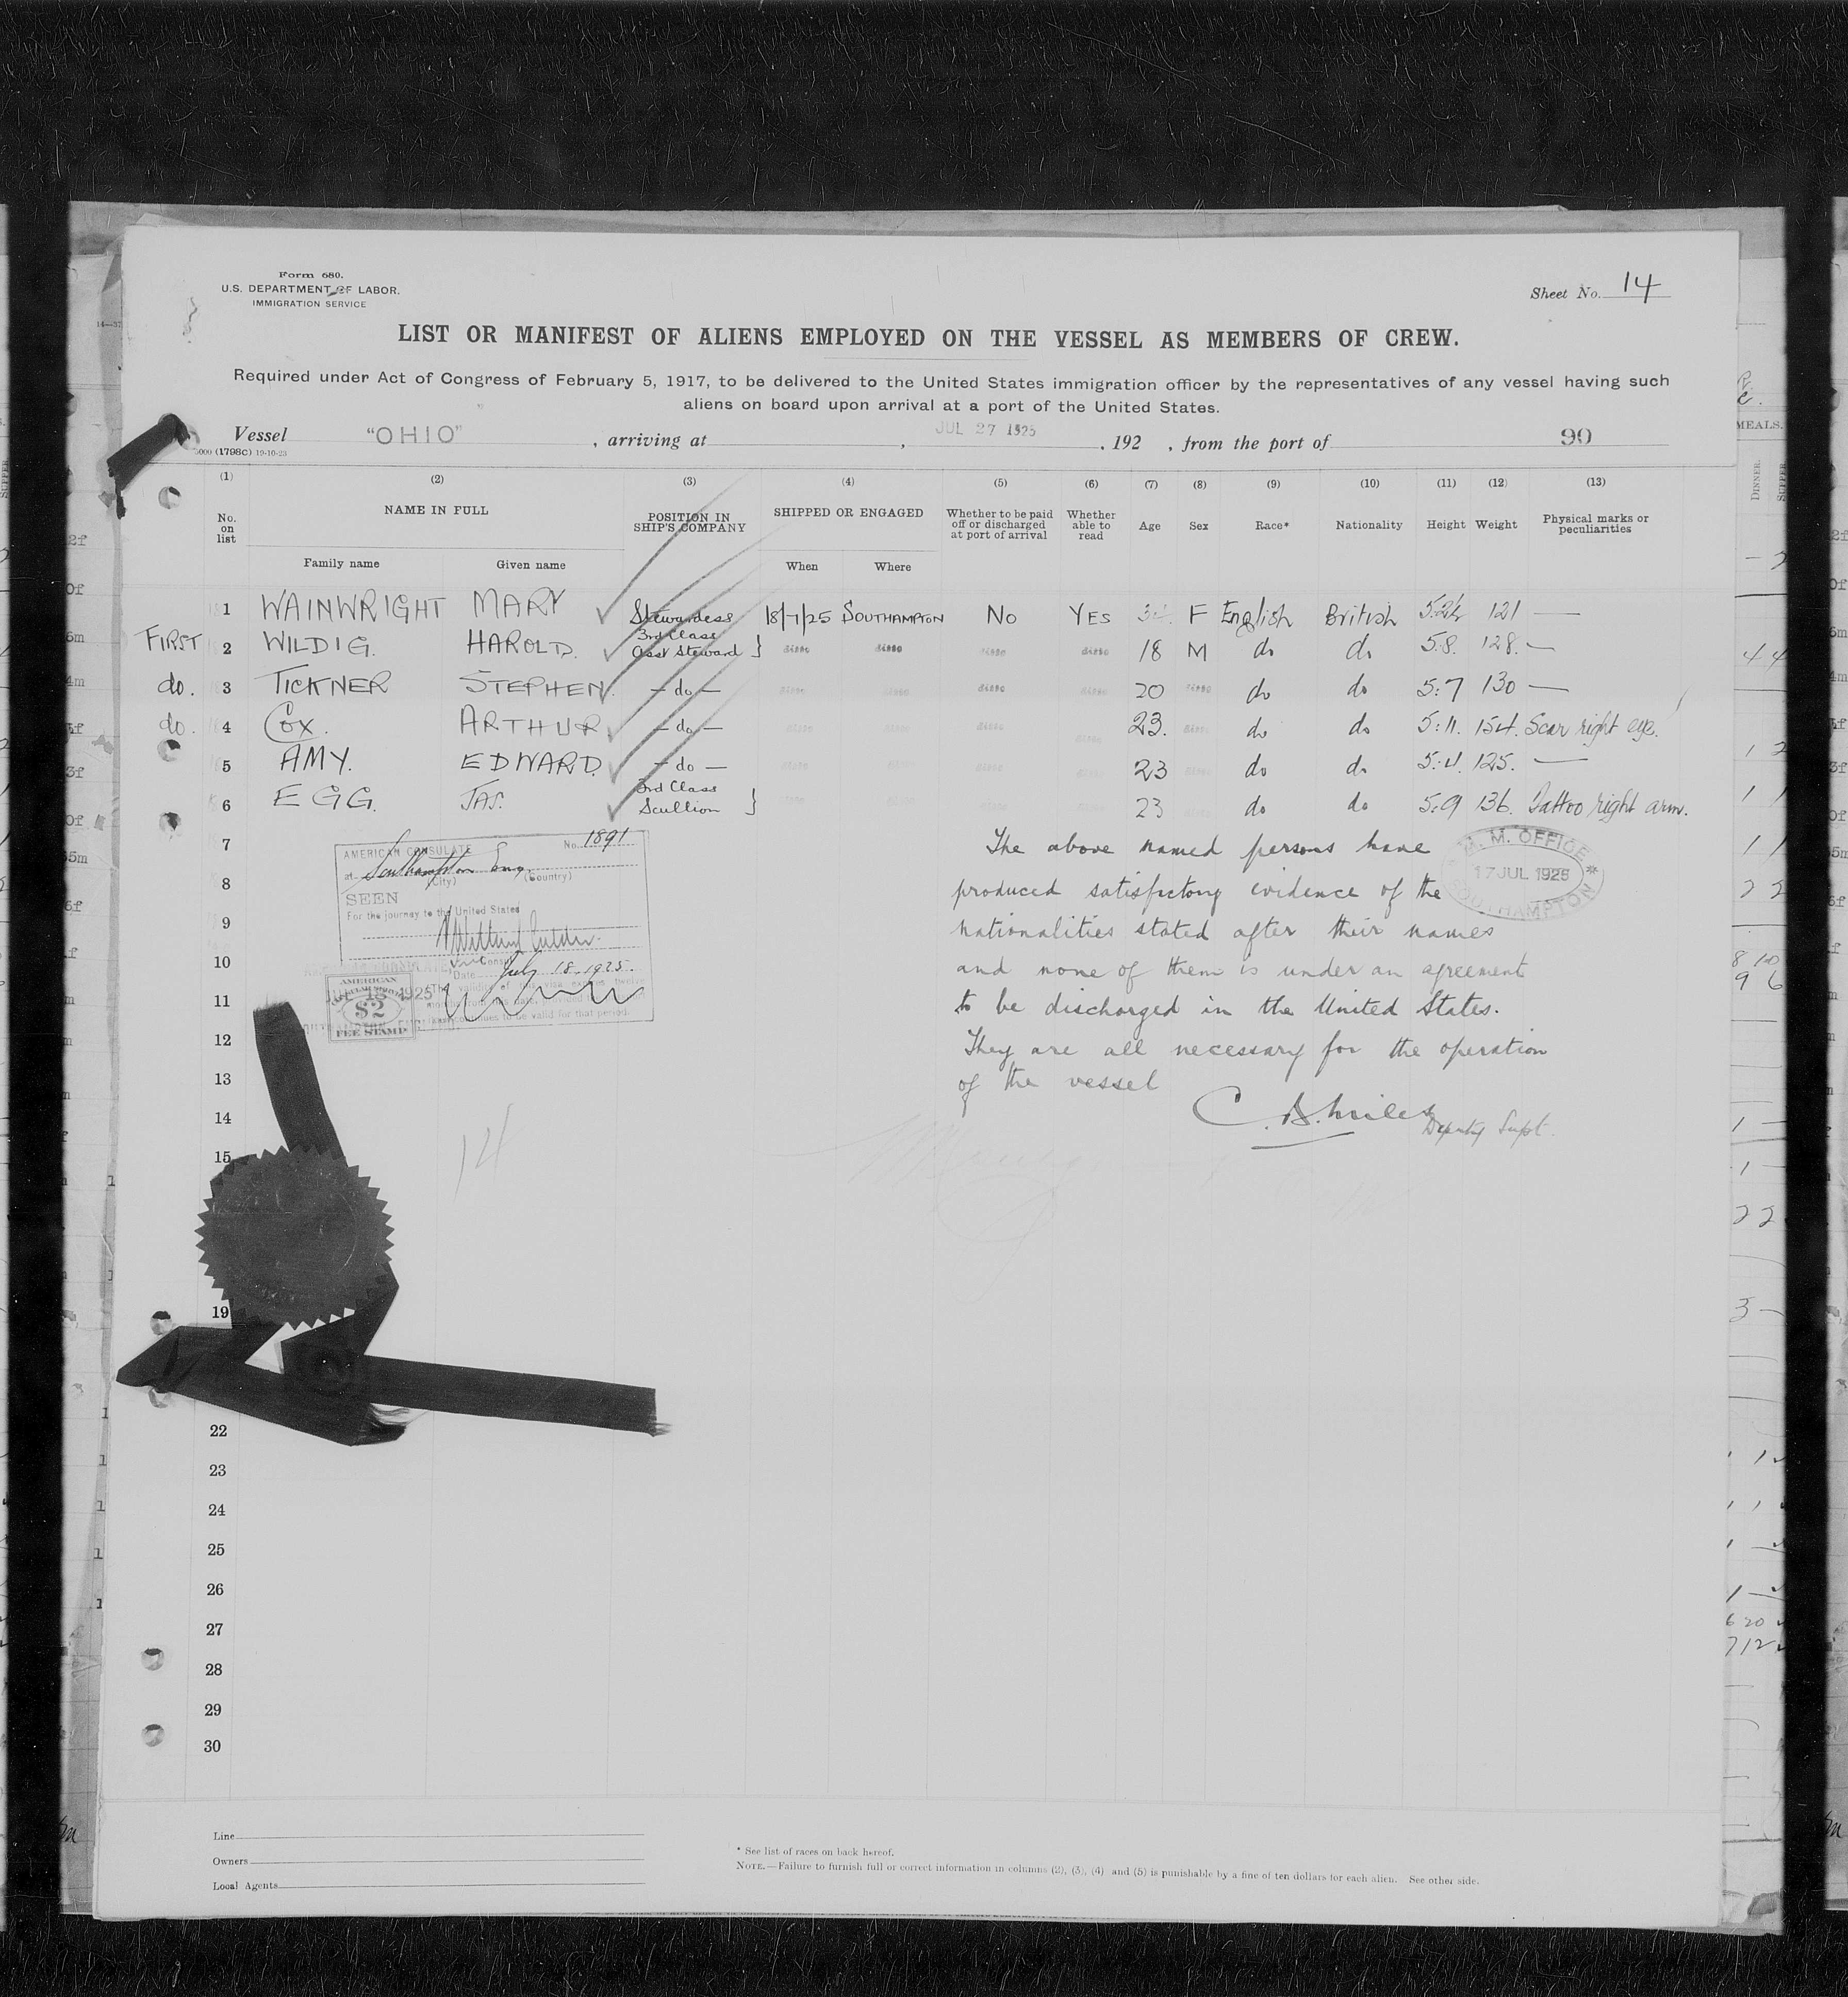 Form 680.
U.S. DEPARTMENT OF LABOR.
IMMIGRATION SERVICE
Sheet No. 14
LIST OR MANIFEST OF ALIENS EMPLOYED ON THE VESSEL AS MEMBERS OF CREW.
Required under Act of Congress of February 5, 1917, to be delivered to the United States immigration officer by the representatives of any vessel having such
aliens on board upon arrival at a port of the United States.
Vessel "OHIO", arriving at , JUL 27 1925, 192 , from the port of 90
(1798C) 19-10-23
(1) (2) (3) (4) (5) (6) (7) (8) (9) (10) (11) (12) (13)
No. on list
NAME IN FULL
Family name Given name
POSITION IN SHIP'S COMPANY
SHIPPED OR ENGAGED
When Where
Whether to be paid off or discharged at port of arrival
Whether able to read
Age Sex Race* Nationality Height Weight
Physical marks or peculiarities
1 WAINWRIGHT MARY Stewardess 18/7/25 SOUTHAMPTON No YES F English British 5:2½ 121 —
FIRST 2 WILDIG. HAROLD. 3rd Class Asst Steward } ditto ditto ditto ditto 18 M do do 5:8. 128. —
do. 3 TICKNER STEPHEN. — do — ditto ditto ditto ditto 20 ditto do do 5:7 130 —
do. 4 COX. ARTHUR — do — ditto ditto ditto ditto 23. ditto do do 5:11. 154. Scar right eye.
5 AMY. EDWARD. — do — ditto ditto ditto ditto 23 ditto do do 5:4. 125. —
6 EGG. JAS. 3rd Class Scullion } ditto ditto ditto ditto 23 ditto do do 5:9 136. Tattoo right arm.
7
8
9
10
11
12
13
14
15
19
22
23
24
25
26
27
28
29
30
AMERICAN CONSULATE No. 1891
at Southampton Eng.
(City) (Country)
SEEN
For the journey to the United States
Vice Consul
Date July 18, 1925.
The validity of this visa expires twelve
months from this date, provided
continues to be valid for that period.
JUL 18 1925
AMERICAN
$2
FEE STAMP
The above named persons have
produced satisfactory evidence of the
nationalities stated after their names
and none of them is under an agreement
to be discharged in the United States.
They are all necessary for the operation
of the vessel
C. B. Miles
Deputy Supt.
M. M. OFFICE
17 JUL 1925
SOUTHAMPTON
14
Line
Owners
Local Agents
* See list of races on back hereof.
NOTE.—Failure to furnish full or correct information in columns (2), (3), (4) and (5) is punishable by a fine of ten dollars for each alien. See other side.
MEALS.
DINNER.
SUPPER